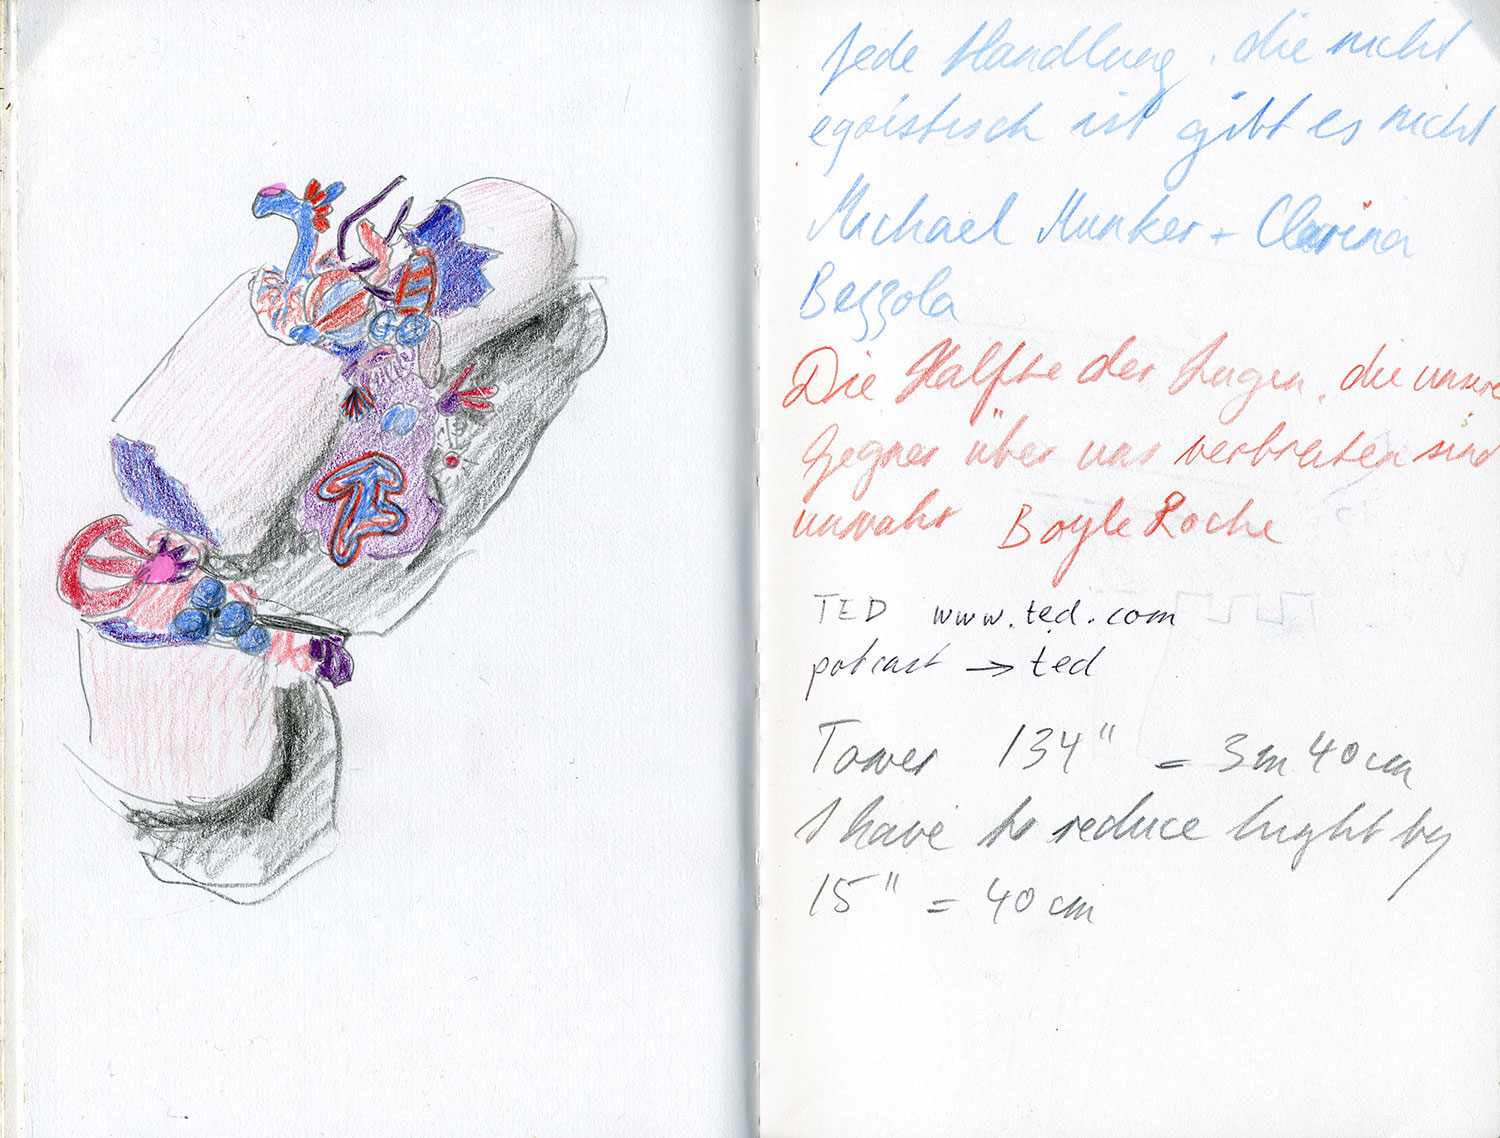 Jede Handlung, die nicht
egoistisch ist gibt es nicht
Michael Munker + Clarina
Bezzola
Die Hälfte der Lugen, die unsere
Gegner über uns verbreiten sind
unwahr Boyle Roche
TED www.ted.com
potcast → ted
Tower 134" = 3m 40cm
I have to reduce hight by
15" = 40cm